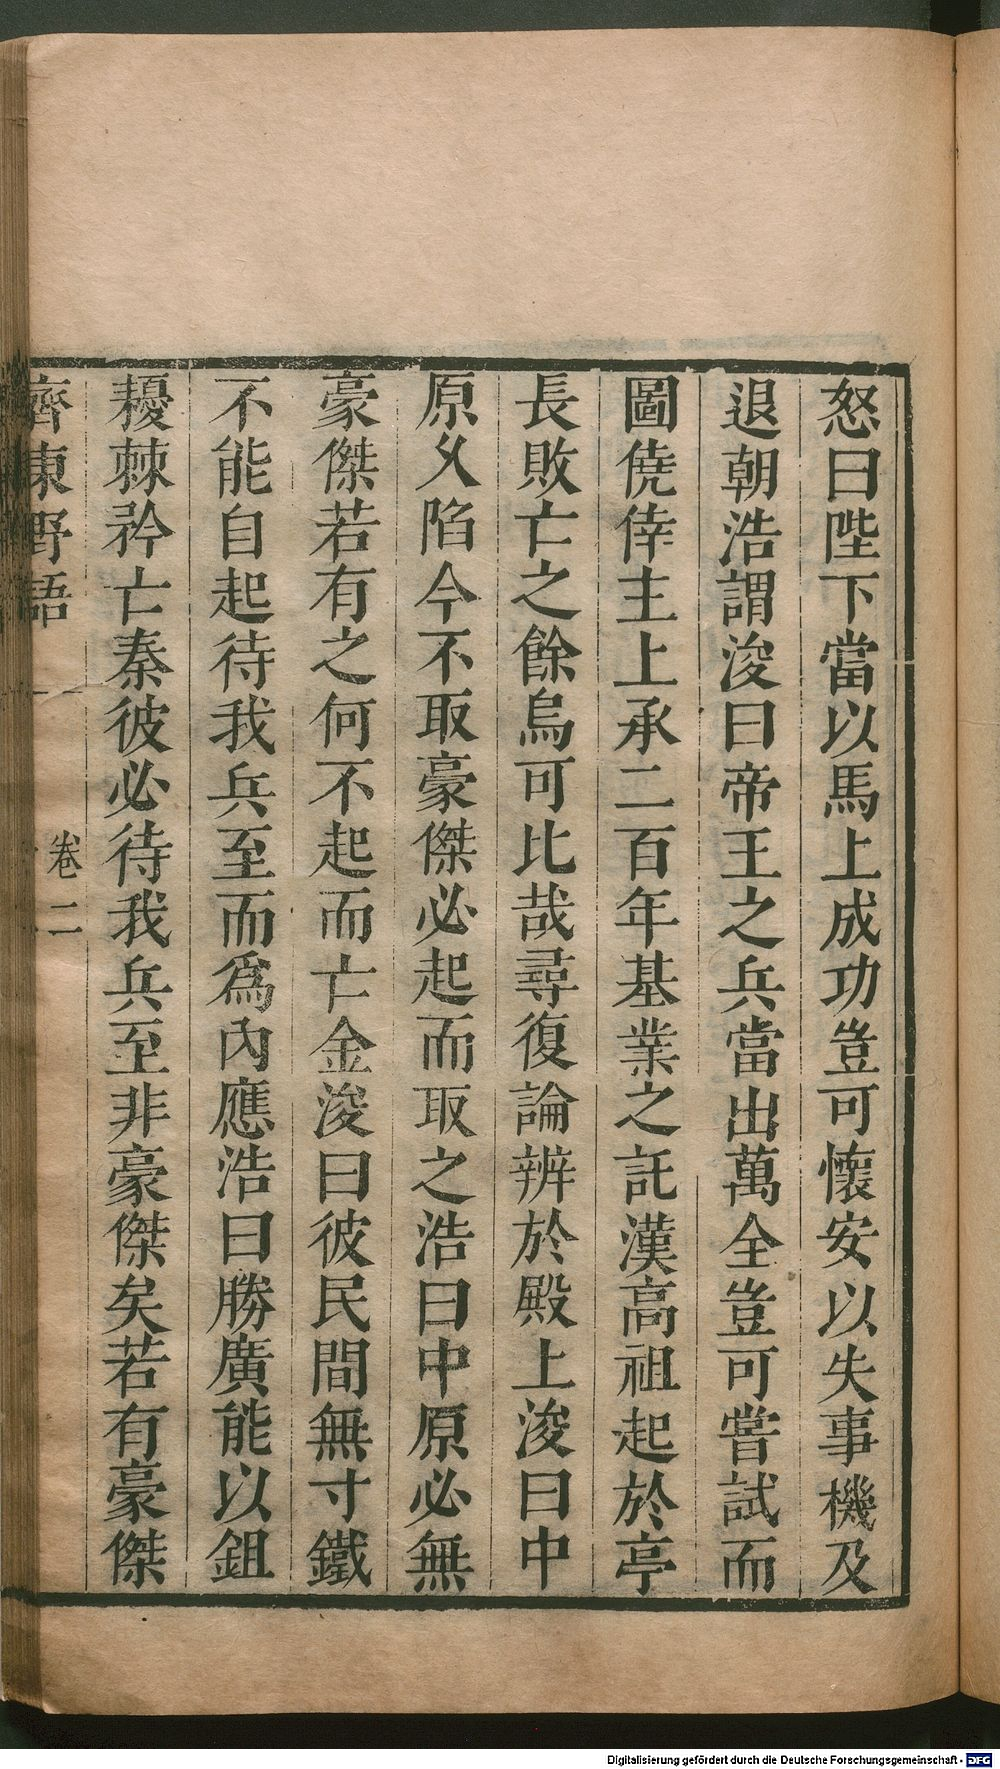 怒曰陛下當以馬上成功豈可懷安以失事機及
退朝浩謂浚曰帝王之兵當出萬全豈可嘗試而
圖僥倖主上承二百年基業之託漢高祖起於亭
長敗亡之餘烏可比哉尋復論辨於殿上浚曰中
原乆陷今不取豪傑必起而取之浩曰中原必無
豪傑若有之何不起而亡金浚曰彼民間無寸鐵
不能自起待我兵至而爲內應浩曰勝廣能以鉏
耰棘矜亡秦彼必待我兵至非豪傑矣若有豪傑
齊東野語
卷二
Digitalisierung gefördert durch die Deutsche Forschungsgemeinschaft - DFG